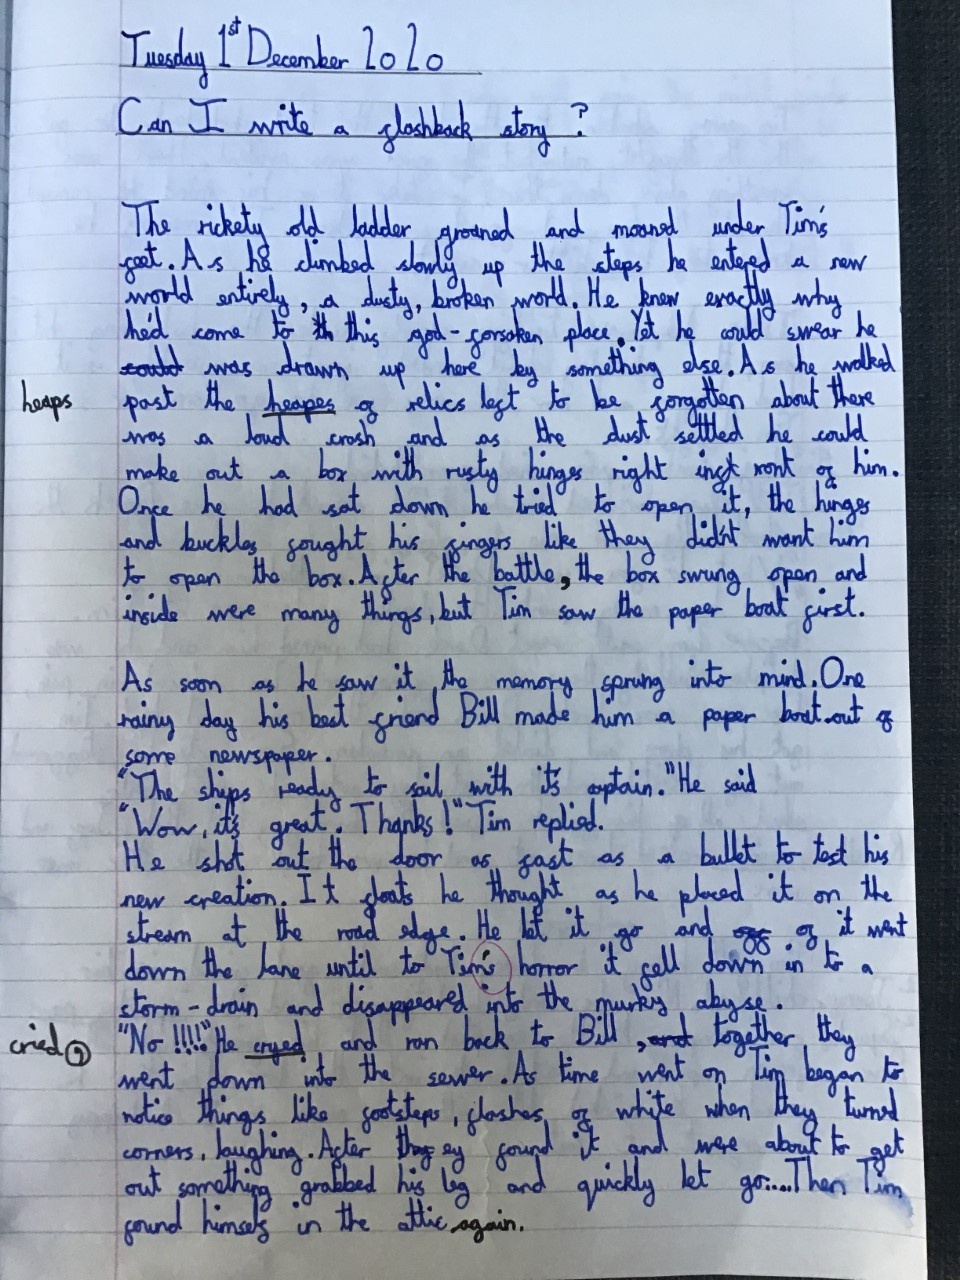 Tuesday 1st December 2020
Can I write a flashback story?
The rickety old ladder groaned and moaned under Tim's
feet. As he climbed slowly up the steps he entered a new
world entirely, a dusty, broken world. He knew exactly why
he'd come to th this god-forsaken place. Yet he could swear he
could was drawn up here by something else. As he walked
heaps past the heapes of relics left to be forgotten about there
was a loud crash and as the dust settled he could
make out a box with rusty hinges right infront of him.
Once he had sat down he tried to open it, the hinges
and buckles fought his fingers like they didn't want him
to open the box. After the battle, the box swung open and
inside were many things, but Tim saw the paper boat first.
As soon as he saw it the memory sprung into mind. One
rainy day his best friend Bill made him a paper boat out of
some newspaper.
"The ships ready to sail with it's captain." He said
"Wow, it's great. Thanks!" Tim replied.
He shot out the door as fast as a bullet to test his
new creation. It floats he thought as he placed it on the
stream at the road edge. He let it go and off of it went
down the lane until to Tim's horror it fell down in to a
storm-drain and disappeared into the murky abyse.
cried "No!!!!" He cryed and ran back to Bill, and together they
went down into the sewer. As time went on Tim began to
notice things like footsteps, flashes of white when they turned
corners, laughing. After they found it and were about to get
out something grabbed his leg and quickly let go.....Then Tim
found himself in the attic again.